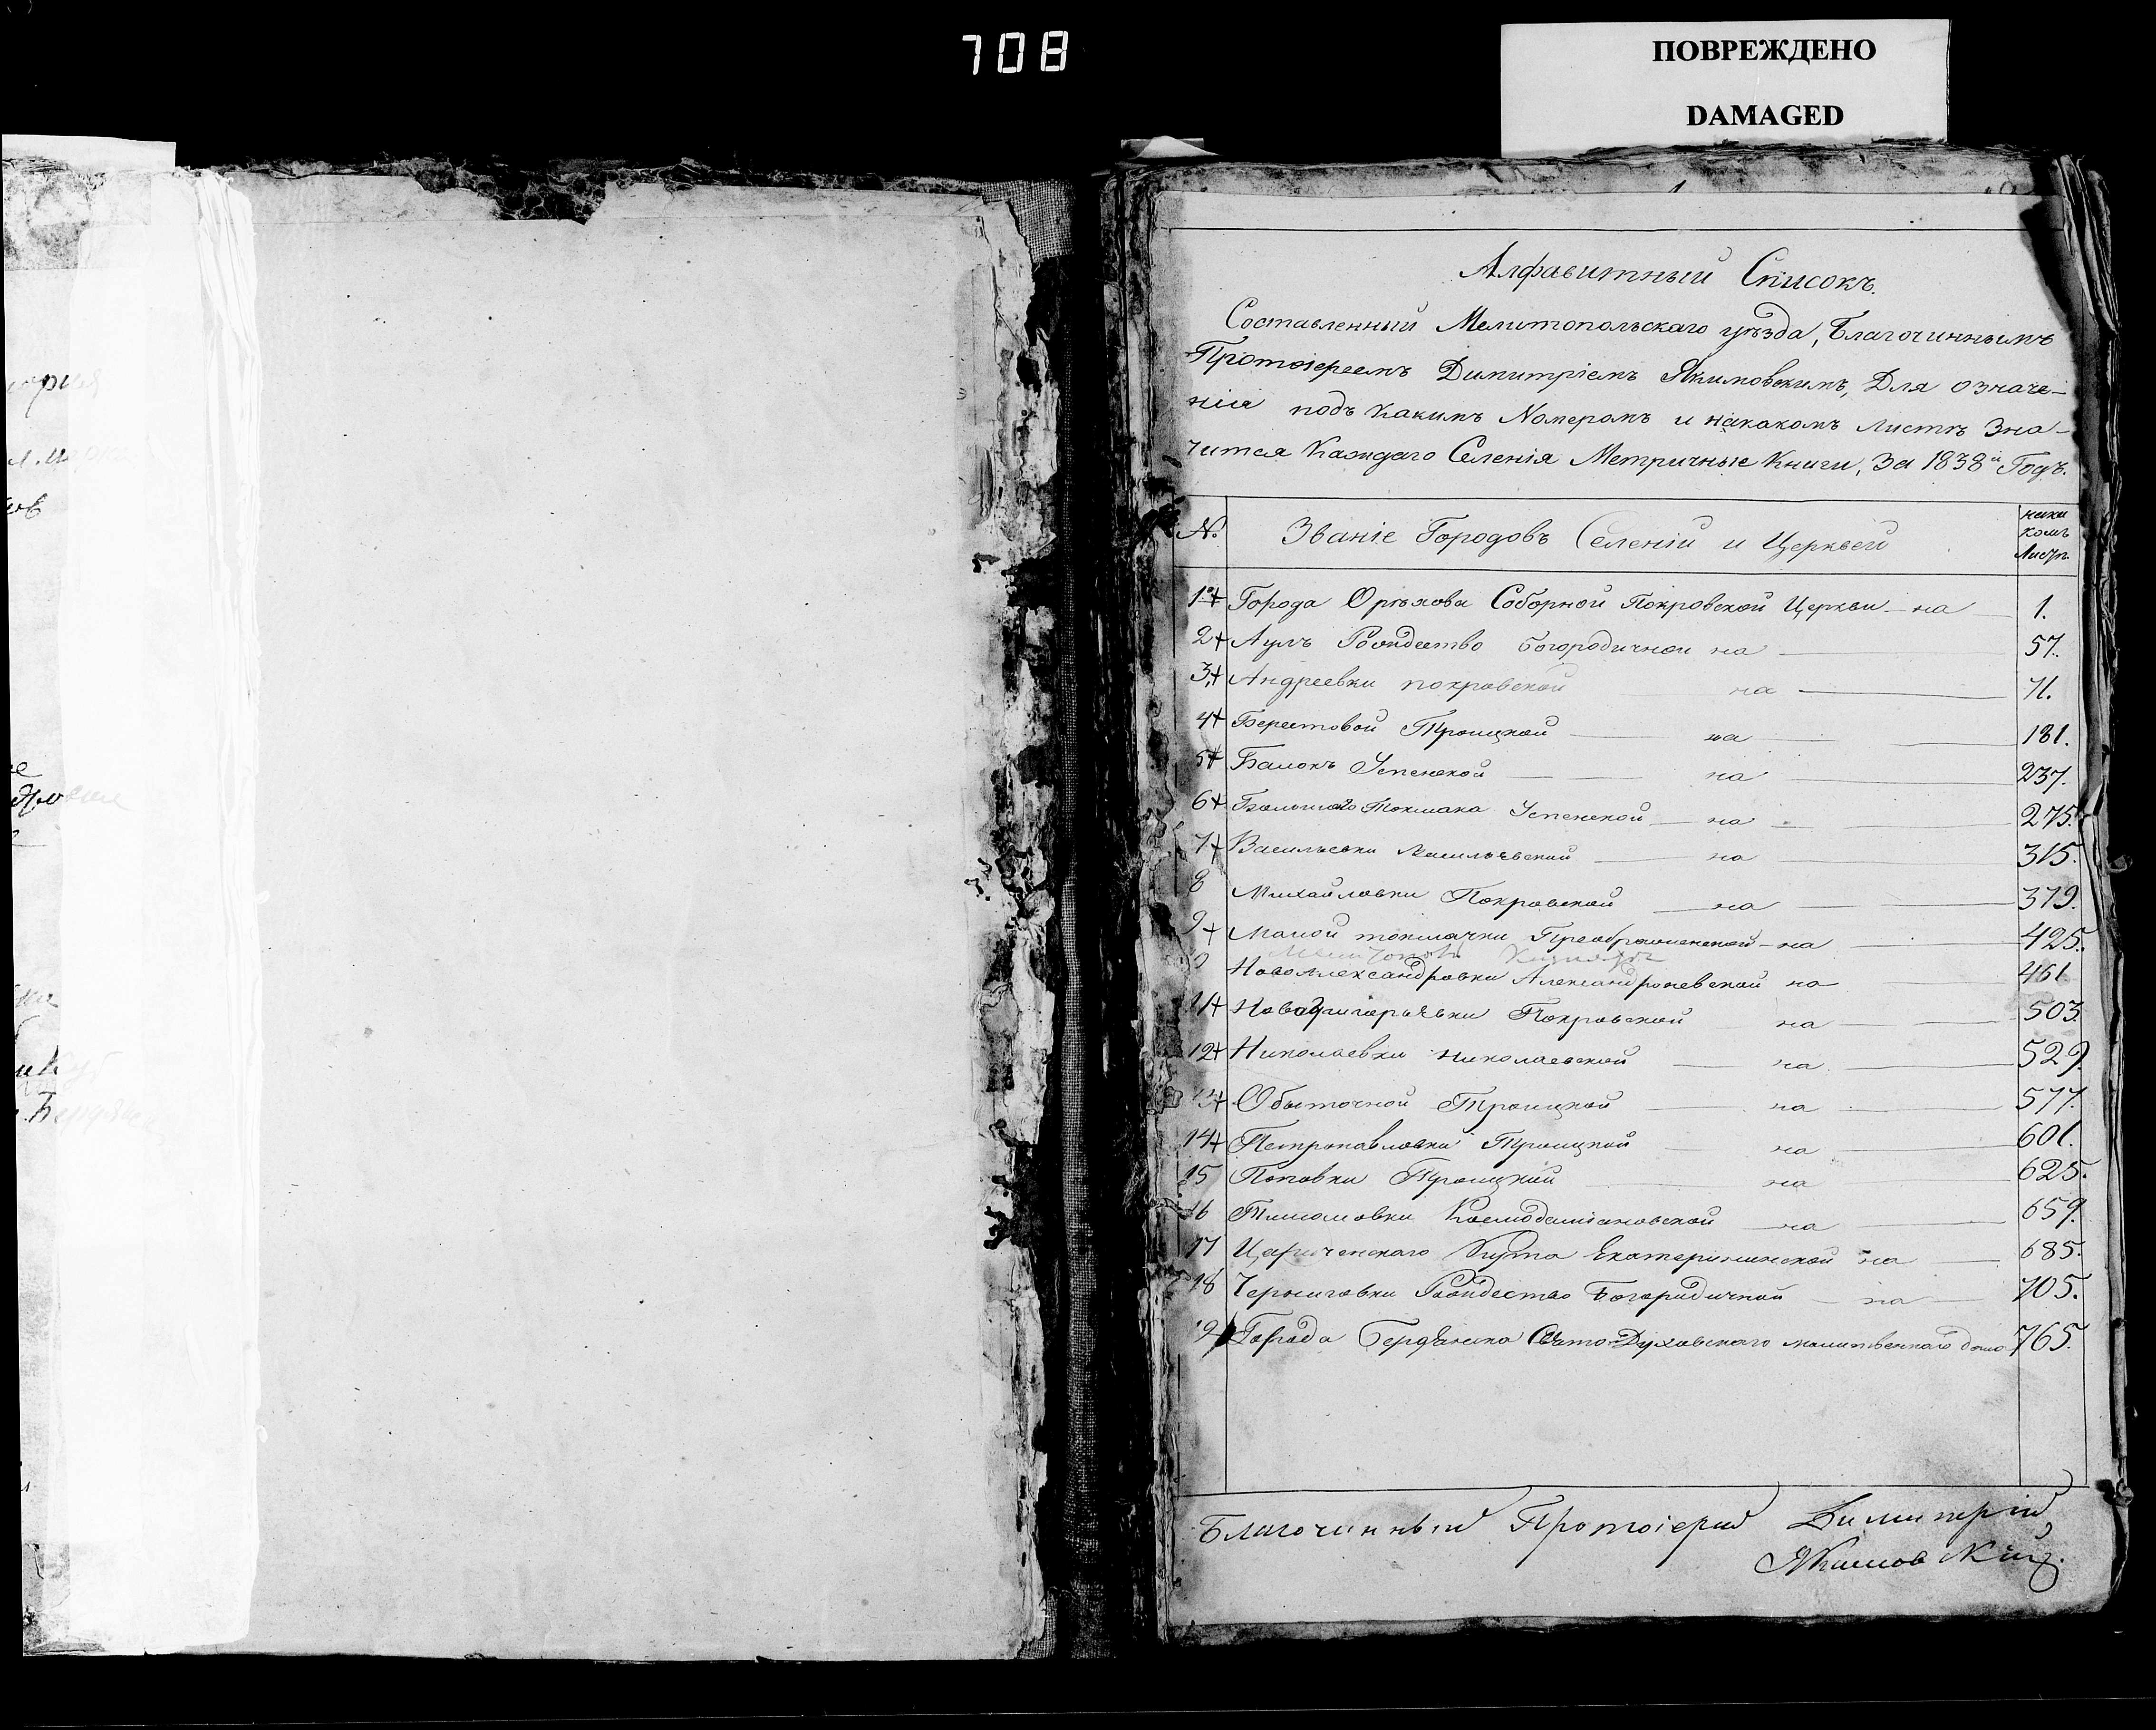 708
ПОВРЕЖДЕНО
DAMAGED
Алфавитный Списокъ.
Составленный Мелитопольскаго уѣзда, Благочиннымъ
Протоіереемъ Димитріемъ Якимовскимъ, Для означе-
нія подъ какимъ Номеромъ и накакомъ листѣ Зна-
чится Каждаго Селенія Метричные Книги, За 1838й Годъ.
№. Званіе Городовъ Селеній и Церквей
комъ
Листѣ.
1 Города Орѣхова Соборной Покровской Церкви на 1.
2 Аулъ Рождество Богородичной на 57.
3 Андреевки покровской на 71.
4 Берестовой Троицкой на 181.
5 Балокъ Успенской на 237.
6 Большаго Токмака Успенской на 275.
7 Васильевки Васильевской на 315.
8 Михайловки Покровской на 379.
9 Малой токмачки Преображенской на 425.
Новоалександровки Александроневской на 461
11 Новогригорьевки Покровской на 503.
12 Николаевки николаевской на 529.
13 Обыточной Троицкой на 577.
14 Петропавловки Троицкой на 601.
15 Поповки Троицкой на 625.
16 Тимошовки Космодаміановской на 659.
17 Царичанскаго Кута Екатерининской на 685.
18 Черниговки Рождество Богородичной на 705.
19 Города Бердянска Свято-Духовскаго молитвеннаго дома 765.
Благочинный Протоіерей Димитрій
Якимовскій.